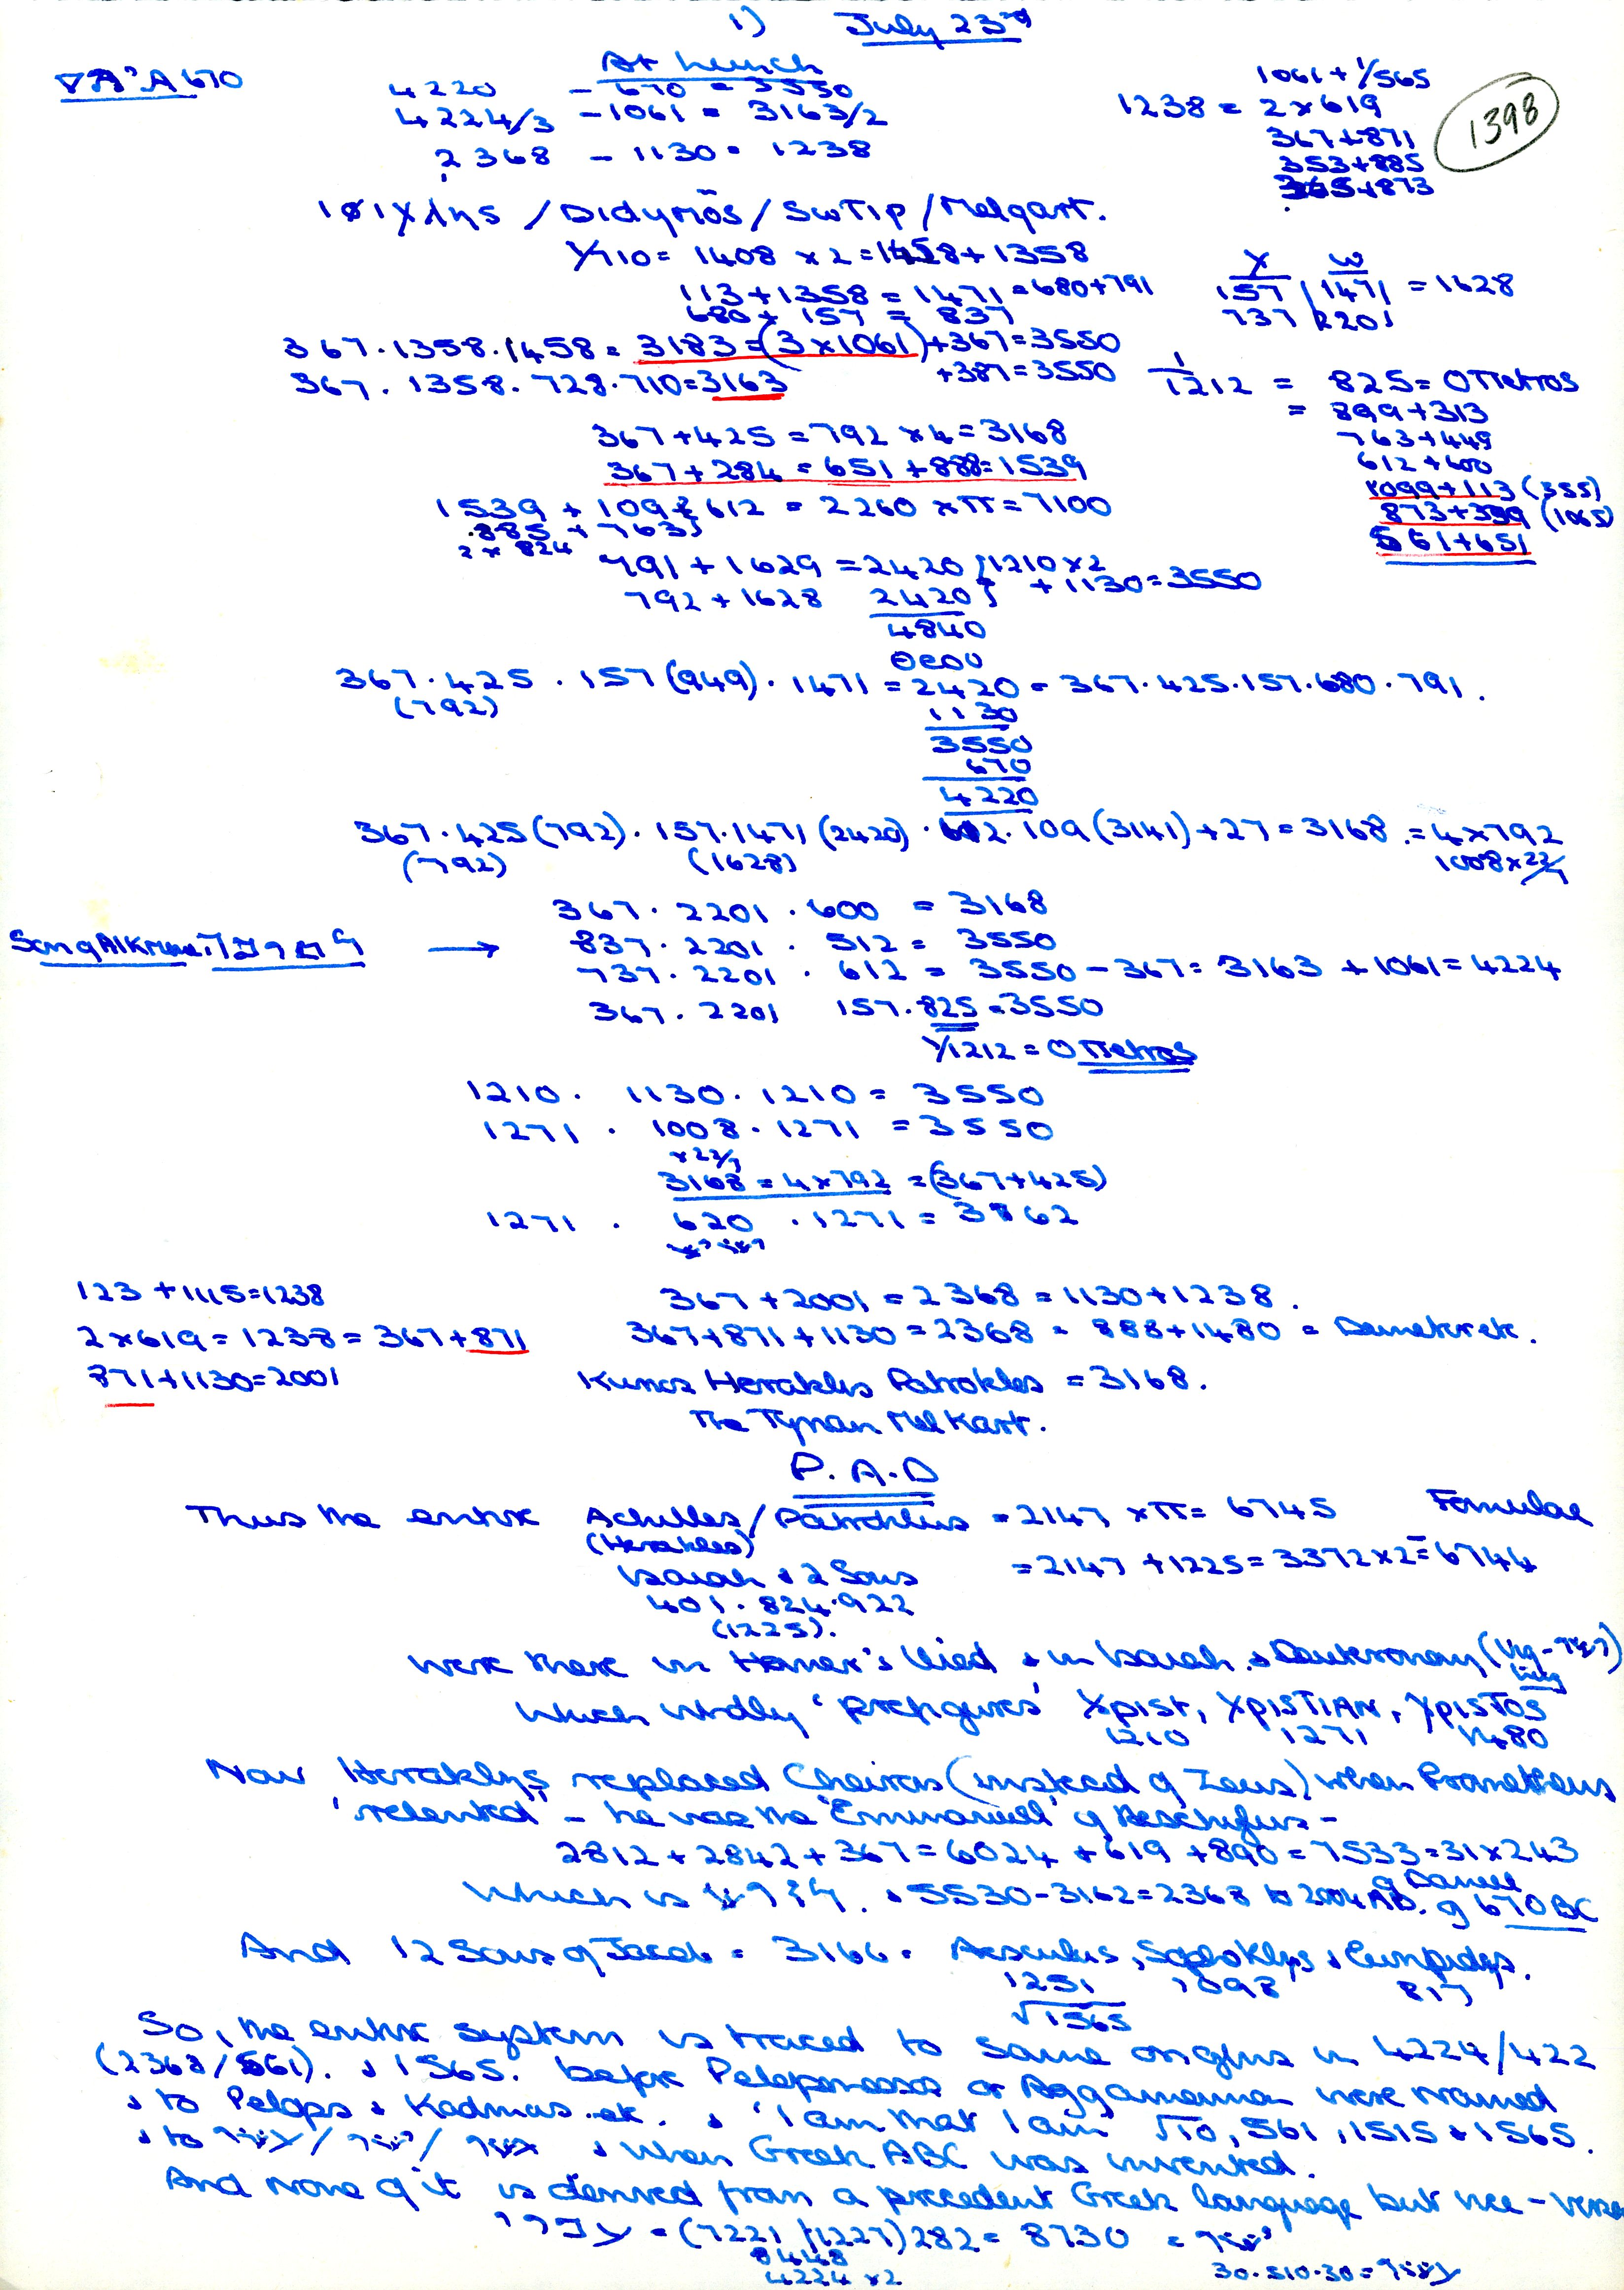 1) July 23rd
At Lunch
670
4220 - 670 = 3550
4224/3 - 1061 = 3163/2
2368 - 1130 = 1238
1061 + 1/565
1238 = 2 x 619
367+871
353+885
365+873
1398
/ Didymos / SwTip / Melqart.
1/710 = 1408 x 2 = 1458 + 1358
113 + 1358 = 1471 = 680+791
680 + 157 = 837
X ω
157 | 1471 = 1628
737 | 2201
367 · 1358 · 1458 = 3183 = (3 x 1061) + 367 = 3550
367 · 1358 · 728 · 710 = 3163 +387 = 3550
1/1212 = 825 = O Πetros
= 899+313
763+449
612+600
1099+113 (355)
873+339 (1065)
561+651
367 + 425 = 792 x 4 = 3168
367 + 284 = 651 + 888 = 1539
1539 + 109 + 612 = 2260 x π = 7100
885 + 763
2 x 824
791 + 1629 = 2420 } 1210 x 2
792 + 1628 2420 } + 1130 = 3550
4840
Θεου
367 · 425 · 157 (949) · 1471 = 2420 = 367 · 425 · 157 · 680 · 791.
(792)
1130
3550
670
4220
367 · 425 (792) · 157 · 1471 (2420) · 612 · 109 (3141) + 27 = 3168 = 4 x 792
(792) (1628) 1008 x 22/7
367 · 2201 · 600 = 3168
→ 837 · 2201 · 512 = 3550
737 · 2201 · 612 = 3550 - 367 = 3163 + 1061 = 4224
367 · 2201 157 · 825 = 3550
1/1212 = O Πetros
1210 · 1130 · 1210 = 3550
1271 · 1008 · 1271 = 3550
x 22/7
3168 = 4 x 792 = (367+425)
1271 · 620 · 1271 = 3162
123 + 1115 = 1238
367 + 2001 = 2368 = 1130 + 1238.
2 x 619 = 1238 = 367 + 871
367 + 871 + 1130 = 2368 = 888 + 1480 =
871 + 1130 = 2001
Heraklis Patrokles = 3168.
The Tyrian Mel Kart.
P.A.D
Thus the entire Achilles / Patrochlus = 2147 x π = 6745 Formulae
(Herakles) = 2147 + 1225 = 3372 x 2 = 6744
Isaiah & 2 Sons
401 · 824 · 922
(1225).
were there in Homer's Iliad & in Isaiah & Deuteronomy
which wholly 'prefigures' Xpist, XpisTIAN, XpisTos
1210 1271 1480
Now Heraklys replaced Cheiron (instead of Zeus) when Prometheus
'relented' - he was the 'Emmanuel' of Aeschylus -
2812 + 2842 + 367 = 6024 + 619 + 890 = 7533 = 31 x 243
of Daniel
which is & 5530 - 3162 = 2368 to 2004 AD. of 670 BC
And 12 Sons of Jacob = 3166 = Aesculus, Sophoklys & Euripidys.
1251 1098 817
√1565
So, the entire system is traced to same origins in 4224/422
(2368/561). & 1565. before Peloponessos or Aggamemnon were named
& to Pelops & Kadmas etc. & 'I am that I am' √10, 561, 1515 & 1565.
& to & when Greek ABC was invented.
And none of it is derived from a precedent Greek language but vice-versa
= (7221 / 1227) 282 = 8730 =
8448
4224 x 2
30 · 510 · 30 =